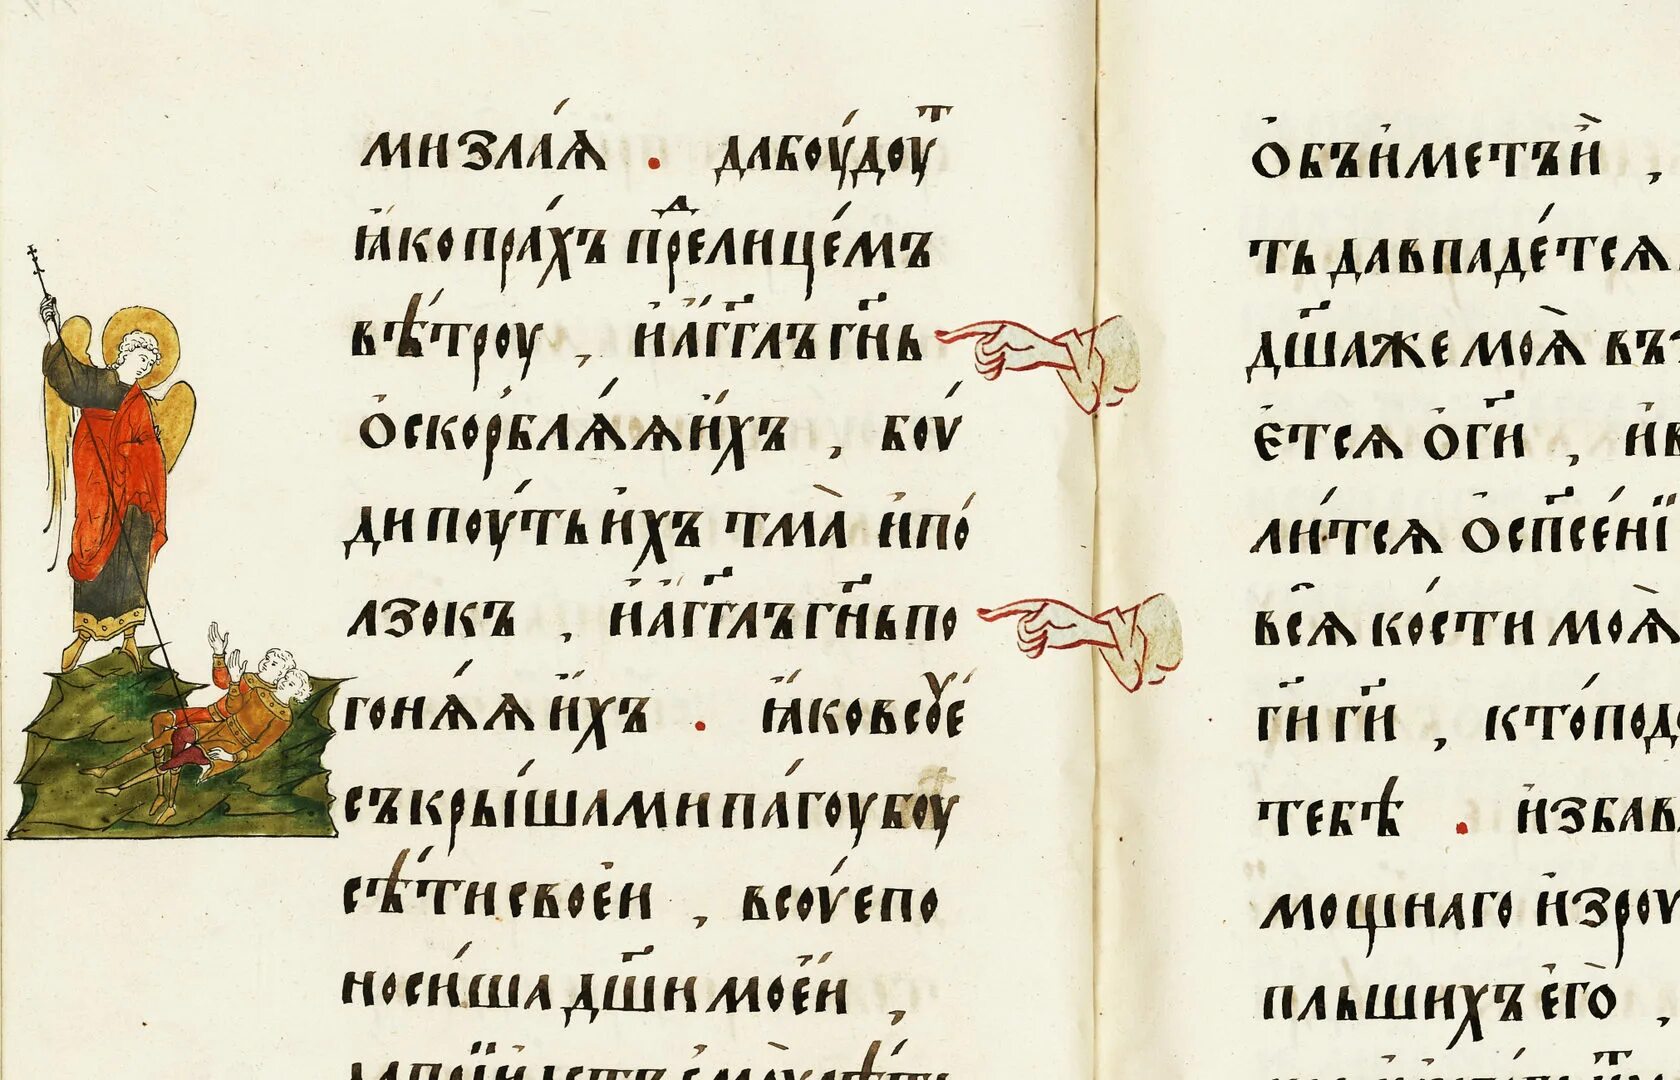 мизла́ѧ . дабоу́доуⷮ
ꙗ҆копра́хъ преⷣлице́мъ
вѣ́троу , и҆а҆́гг҃лъ гн҃ь
ѻ҆скорблѧ́ѧ и҆́хъ , боу́
ди поу́ть и҆́хъ тма̀ и҆по́
лзокъ , и҆а҆́гг҃лъ гн҃ь по
гонѧ́ѧ и҆́хъ . ꙗ҆́ковсоу́е
съкры́шами па́гоубоуⷮ
сѣ́ти своеѝ , всоу́е по
носи́ша дш҃и мое́и ,
ѻ҆бъи҆метъѝ ,
ть давпаде́тсѧ
дш҃аже моѧ̀
е҆тсѧ ѻ҆ гн҃ѣ ,
ли́тсѧ ѻ҆ сп҃се́нї
всѧ̀ ко́сти моѧ̀
гн҃и гн҃и , кто́под
тебѣ̀ . и҆збав
мощнаго и҆зроу
пльшихъ е҆го̀ ,